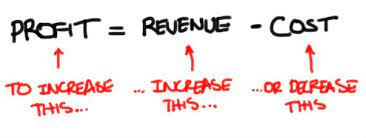 PROFIT = REVENUE - COST
TO INCREASE THIS... ... INCREASE THIS... ...OR DECREASE THIS